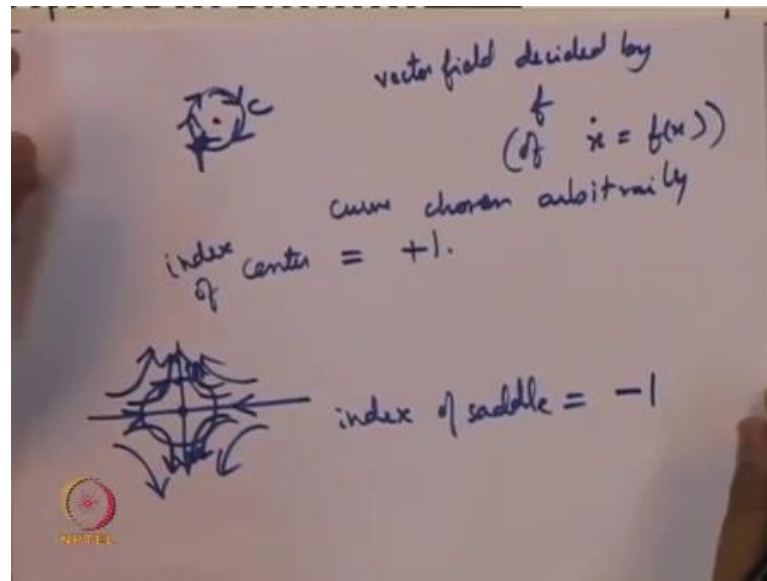 vector field decided by
f
(of ẋ = f(x))
C
curve chosen arbitrarily
index
of center = +1.
index of saddle = -1
NPTEL